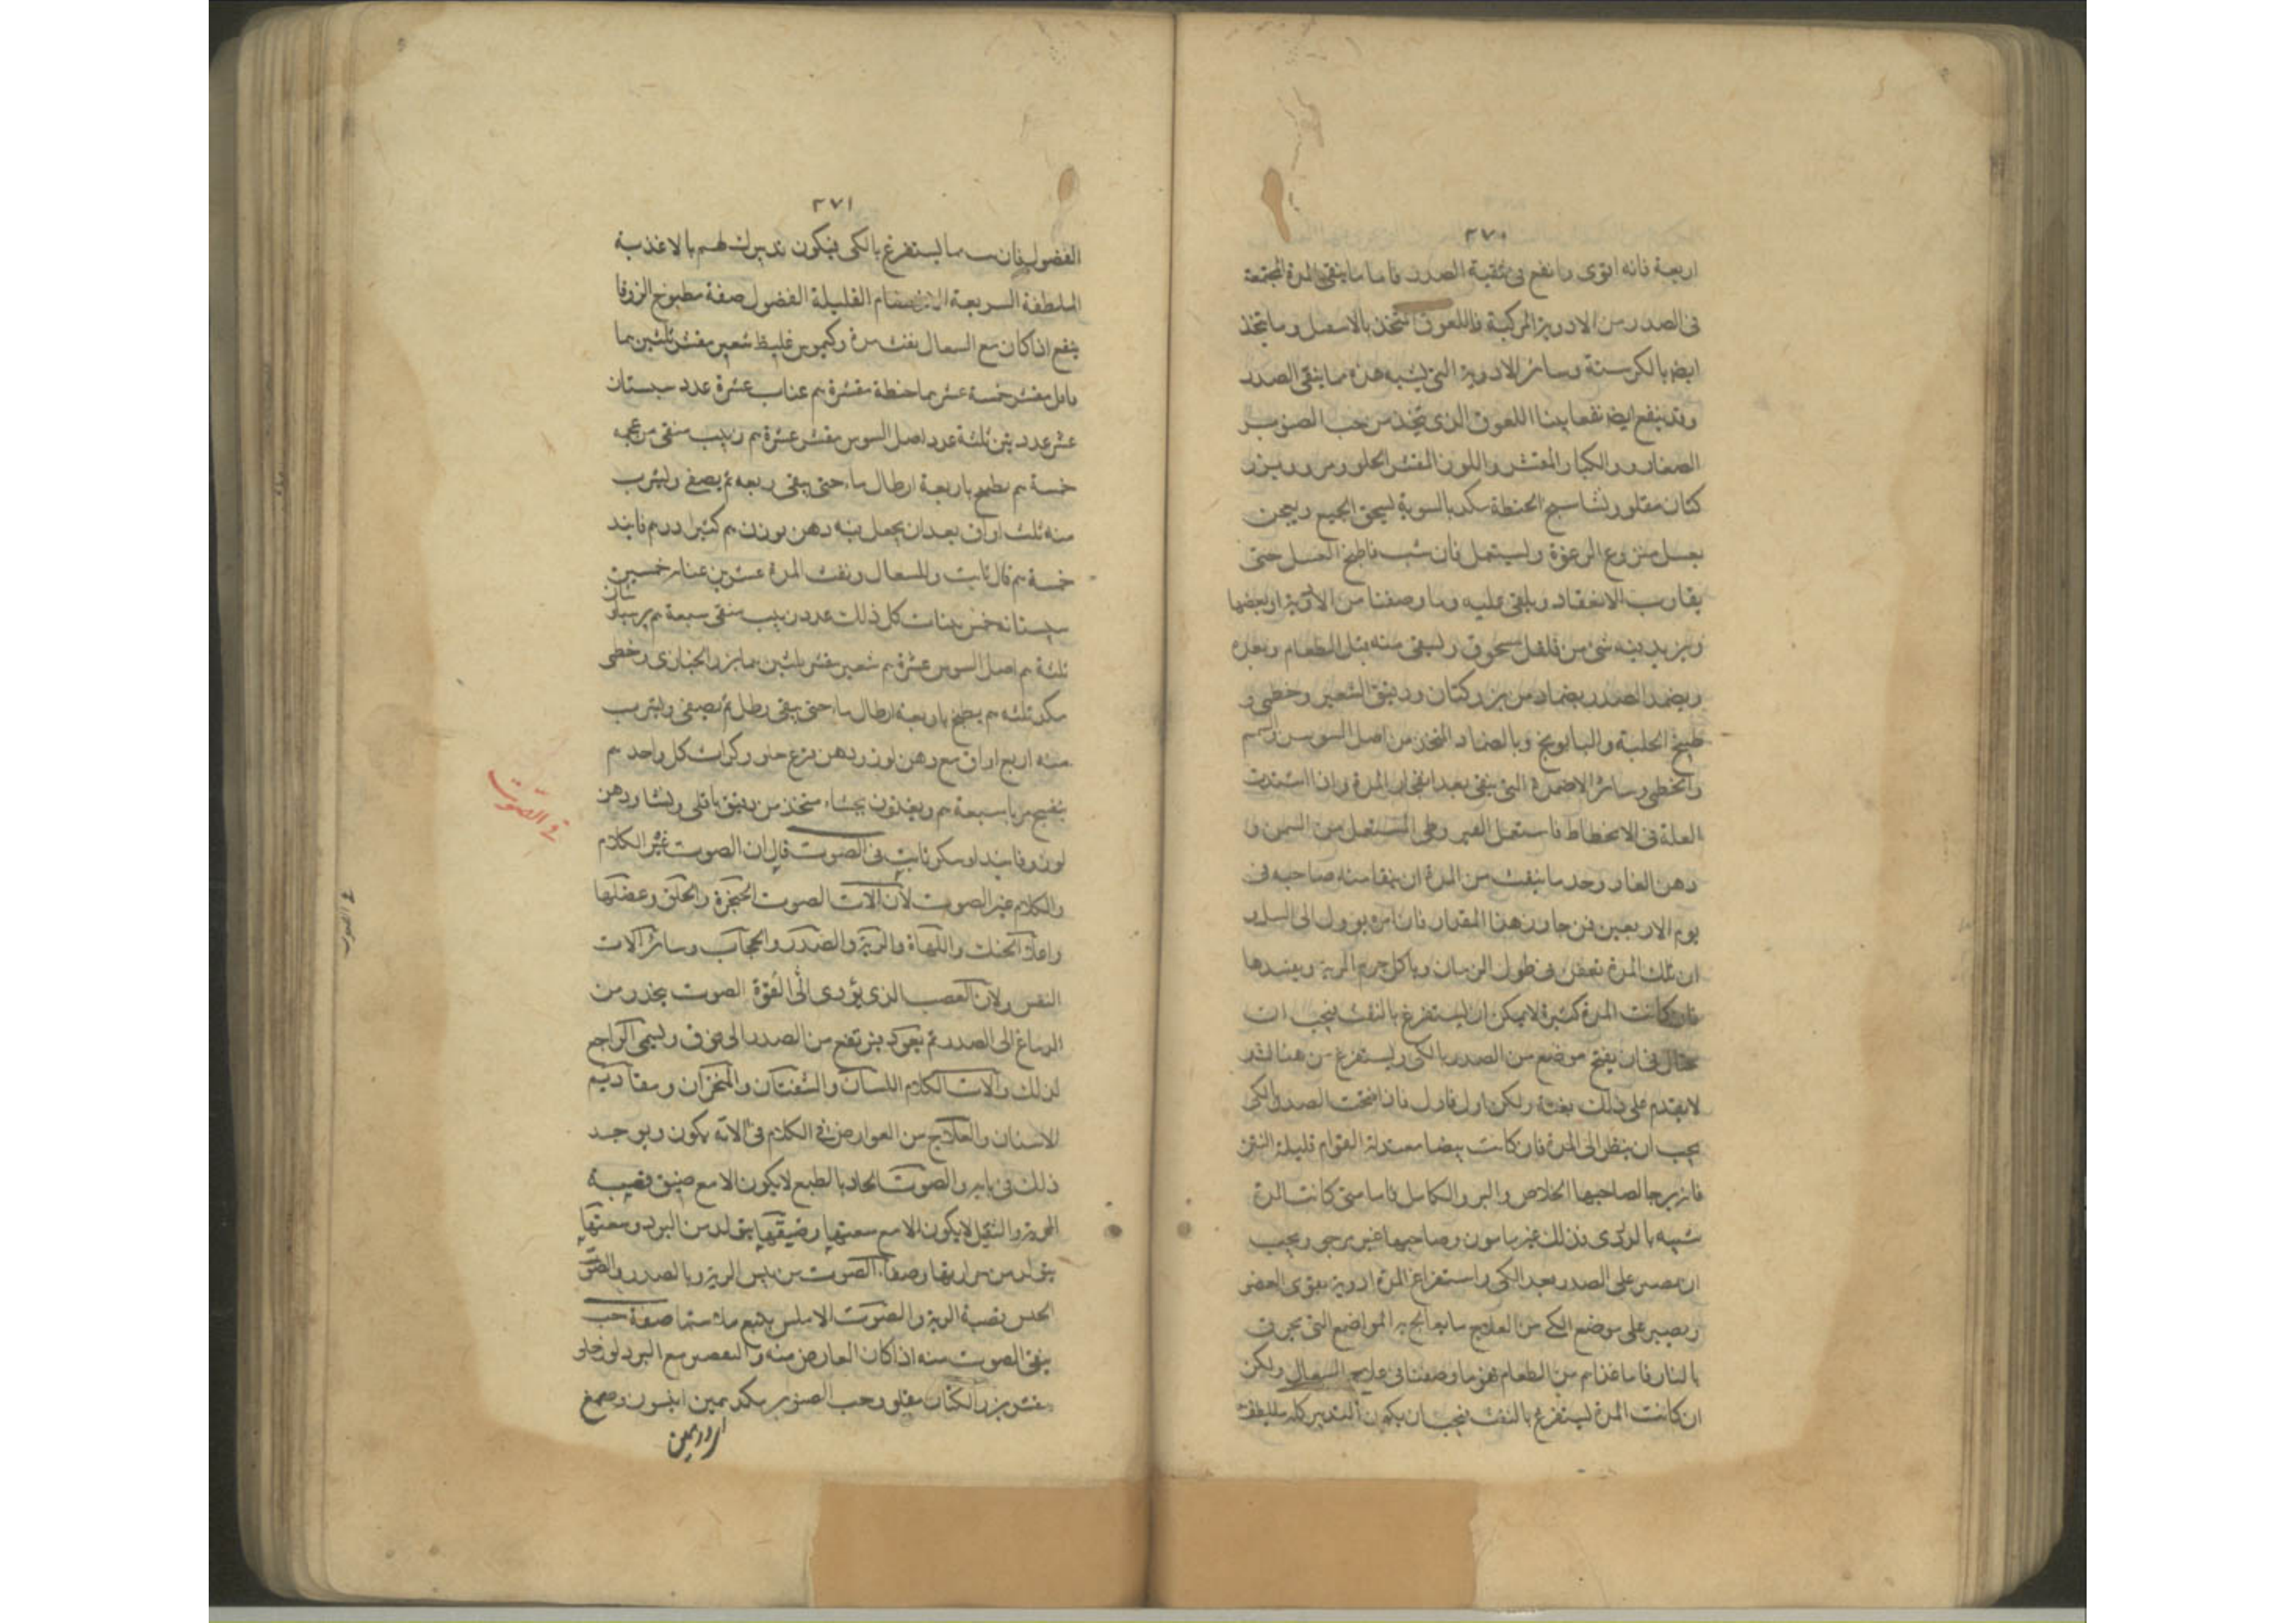 ٢٧٠
اربعة فانه اقوى وانفع فى تنقية الصدر فاما ما ينقى المدة المجتمعة
فى الصدر من الادوية المركبة فاللعوق المتخذ بالاسقيل وما يتخذ
ايضا بالكرسنة وسائر الادوية التى يشبه هذه مما ينقى الصدر
وقد ينفع ايضا نفعا بينا اللعوق الذى يتخذ من حب الصنوبر
الصغار والكبار المقشر واللوز المقشر الحلو ومر وبزر
كتان مقلو ونشاستج الحنطة سكر بالسوية يسحق الجميع ويعجن
بعسل منزوع الرغوة ويستعمل فان شئت فاطبخ العسل حتى
يقارب الانعقاد ويلقى عليه وما وصفنا من الادوية او بعضها
ويزيد فيه شئ من فلفل مسحوق ويسقى منه قبل الطعام وبعده
ويضمد الصدر بضماد من بزر كتان ودقيق الشعير وخطمى و
طبيخ الحلبة والبابونج وبالضماد المتخذ من اصل السوسن
والخطمى وسائر الاضمدة التى ينقى بعد انفجار المدة واذا اشتدت
العلة فى الانحطاط فاستعمل القير وطى المستعمل من السمن و
دهن الغار وحد ما ينفث من المدة ان ينقا منه صاحبه فى
يوم الاربعين فمن جاوز هذا المقدار فان امره يوول الى السل و
ان تلك المدة تعفن فى طول الزمان وياكل جرم الرية ويفسدها
فان كانت المدة كثيرة لا يمكن ان يستفرغ بالنفث فيجب ان
يحتال فى ان يفتح موضع من الصدر بالكى ويستفرغ من هنالك و
لا يقدم على ذلك بغتة ولكن اول فاول فاذا فتحت الصدر بالكى
يجب ان ينظر الى المدة فان كانت بيضا معتدلة القوام قليلة النتن
فانه يرجا لصاحبها الخلاص والبرو الكامل فاما متى كانت المدة
شبيه بالدردى فذلك غير مامون وصاحبها غير يرجى ويجب
ان يصير على الصدر بعد الكى واستفراغ المدة ادوية يقوى العضو
ويصير على موضع الكى من العلاج ما يعالج به المواضع التى يحرق
بالنار فاما غذاهم من الطعام فهو ما وصفنا فى علاج السعال ولكن
ان كانت المدة ليستفرغ بالنفث فيجب ان يكون التدبير كله
٢٧١
الفضول فان مما ليستفرغ بالكى فيكون تدبيرك لهم بالاغذية
الملطفة السريعة الانهضام القليلة الفضول صفة مطبوخ الزوفا
ينفع اذا كان مع السعال نفث مدة وكيموس غليظ شعير مقشر ثلثين
مقشر خمسة عشر حنطة مقشرة عناب عشرة عدد سبستان
عشر عدد تين ثلثة عدد اصل السوس مقشر عشرة زبيب منقى من عجمه
خمسة يطبخ باربعة ارطال ماء حتى يبقى ربعه ثم يصفى ويشرب
منه ثلث اواق بعد ان يجعل فيه دهن لوز كثيرا درهم فانيد
خمسة قال ثابت وللسعال ونفث المدة عشرين عناب خمسين
سبستانه خمس تينات كل ذلك عدد زبيب منقى سبعة برسياوشان
ثلثة اصل السوس عشرة شعير مقشر ثلثين بزر الخبازى وخطمى
مكد ثلثه يطبخ باربعة ارطال ماء حتى يبقى رطل ثم يصفى ويشرب
منه اربع اواق مع دهن لوز ودهن قرع حلو وكثيرا كل واحد
بنفسج مربا سبعة ويغذون بحساء متخذ من دقيق باقلى ونشا ودهن
لوز وفانيد او سكر ثابت فى الصوت قال ان الصوت غير الكلام
والكلام غير الصوت لان آلات الصوت الحنجرة والحلق وعضلها
واعلا الحنك واللهاة والرية والصدر والحجاب وسائر آلات
النفس ولان العصب الذى يؤدى الى القوة الصوت ينحدر من
الدماغ الى الصدر ثم يعود يرتفع من الصدر الى فوق ويسمى الراجع
لذلك والات الكلام اللسان والشفتان والمنخران ومقاديم
الاسنان والعلاج من العوارض فى الكلام فى الآته يكون ويوجد
ذلك فى بابه والصوت الحاد بالطبع لا يكون الا مع ضيق قصبة
الحنجرة والثقيل لا يكون الا مع سعتها وضيقها يتولد من البرد وسعتها
يتولد من حرارتها وصفاء الصوت من يبس الرية وبالصدر والصوت
الخشن بقصبة الرية والصوت الاملس يتبع صفة حب
ينقى الصوت منه اذا كان العارض منه والبعصر مع البرد لوز حلو
مقشر بزر الكتان مقلو وحب الصنوبر مكد انيسون وصمغ
فى الصوت
فى الصوت